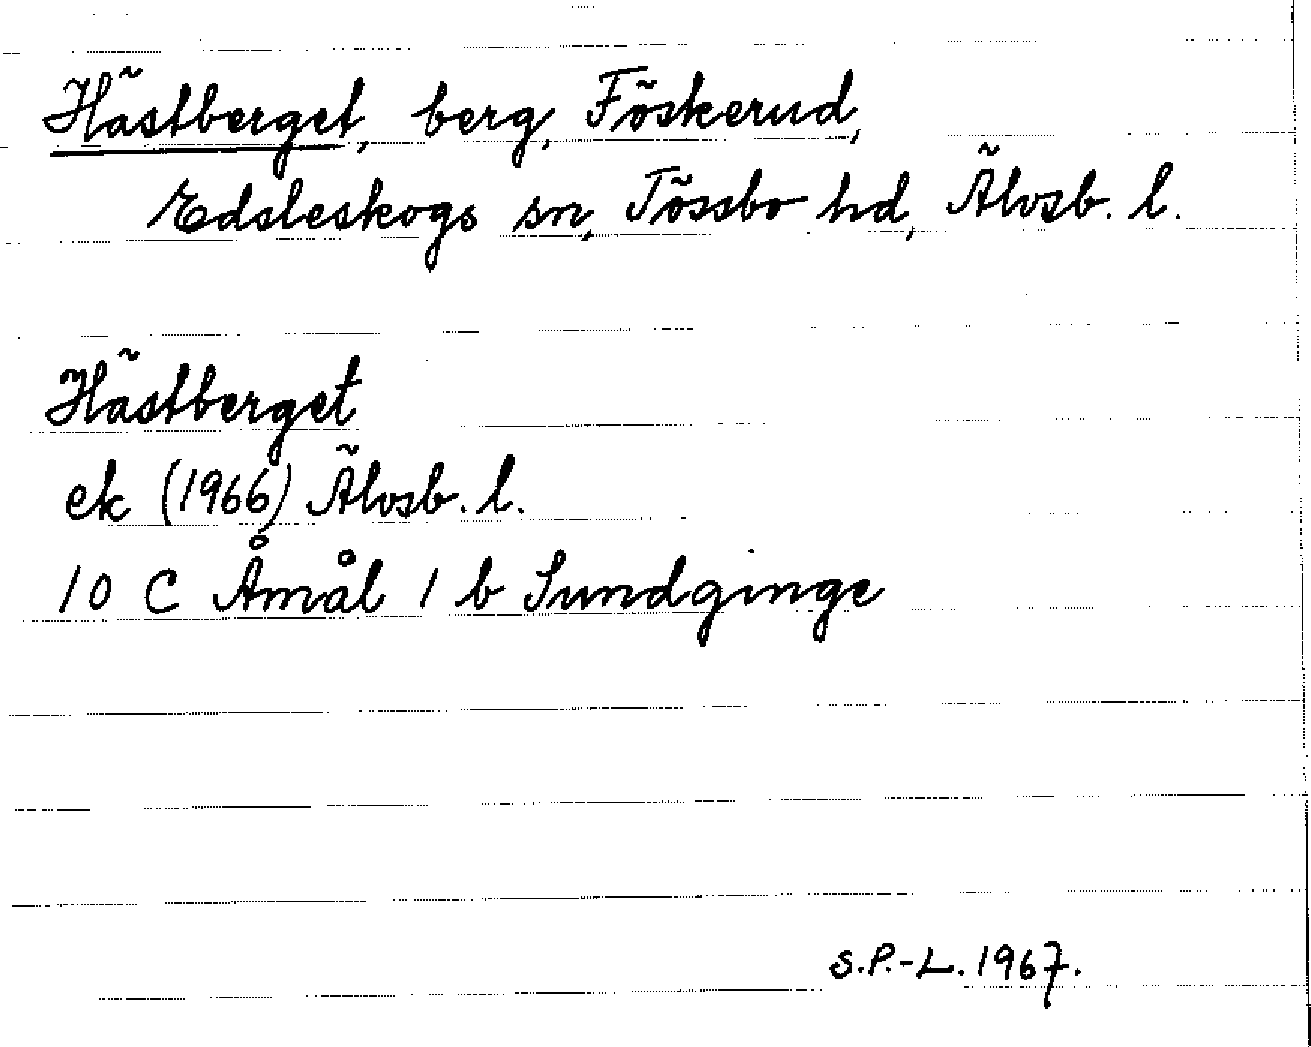 Hästberget, berg, Föskerud,
Edsleskogs sn, Tössbo hd, Älvsb. l.
Hästberget
ek (1966) Älvsb. l.
10 C Åmål 1 b Sundginge
S.P.-L. 1967.